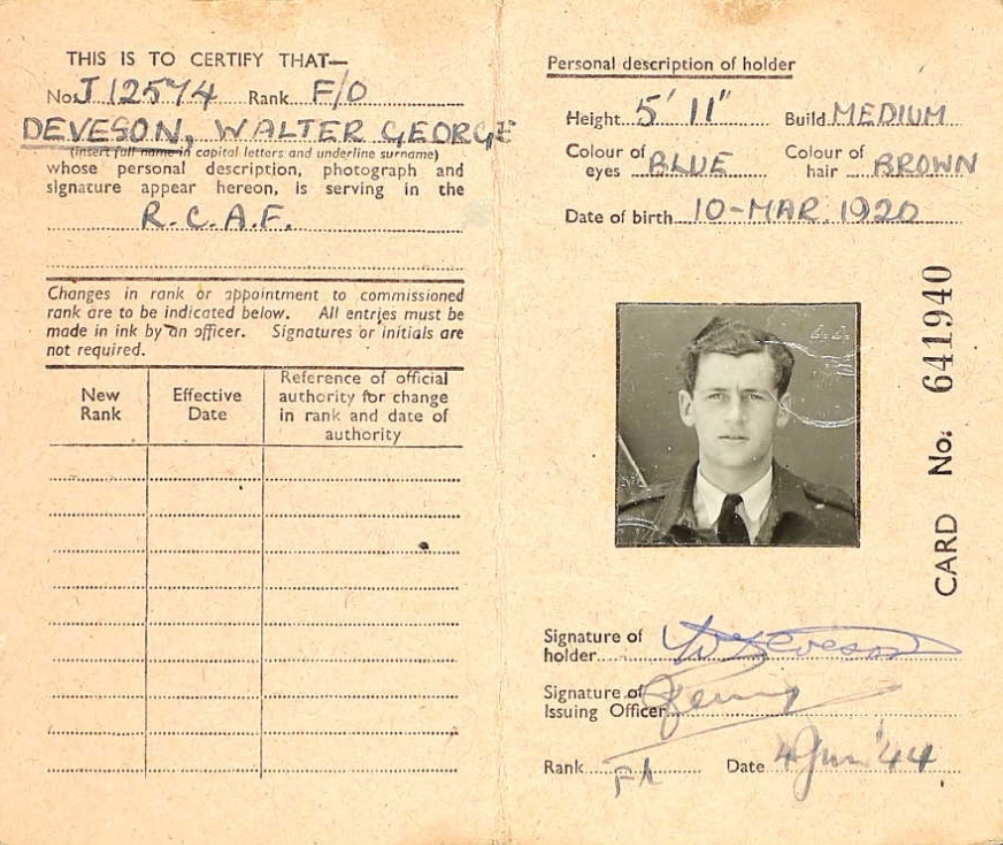 THIS IS TO CERTIFY THAT—
No. J 12574 Rank F/O
DEVESON, WALTER GEORGE
(insert full name in capital letters and underline surname)
whose personal description, photograph and
signature appear hereon, is serving in the
R.C.A.F.
Changes in rank or appointment to commissioned
rank are to be indicated below. All entries must be
made in ink by an officer. Signatures or initials are
not required.
New Rank
Effective Date
Reference of official authority for change in rank and date of authority
Personal description of holder
Height 5' 11" Build MEDIUM
Colour of eyes BLUE Colour of hair BROWN
Date of birth 10-MAR.1920
CARD No. 641940
Signature of
holder W Deveson
Signature of
Issuing Officer
Rank Date 4 Jun '44